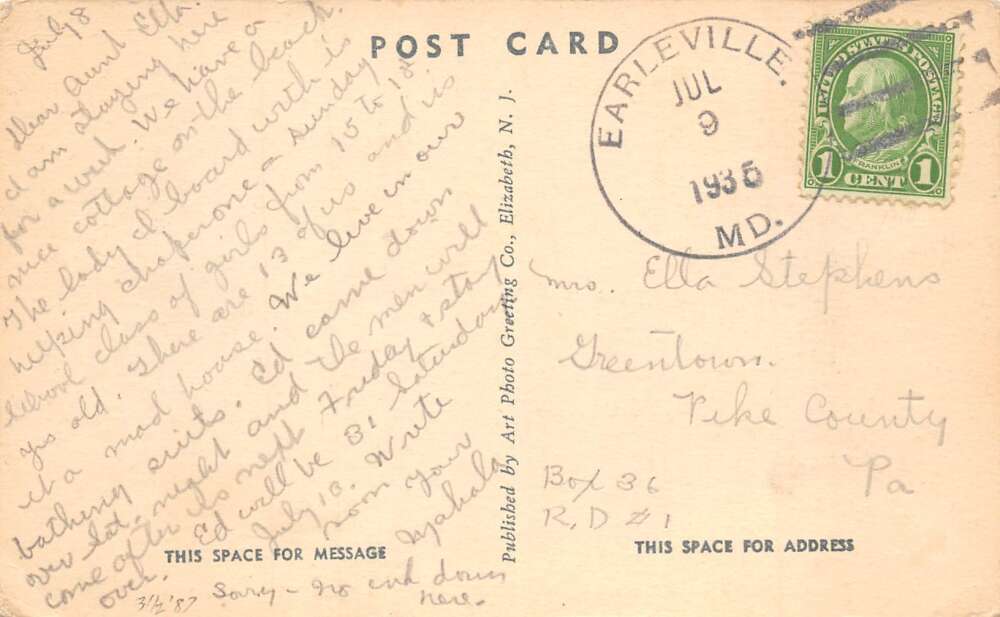 POST CARD
July 8
Dear Aunt Ella.
I am staying here
for a week. We have a
nice cottage on the beach.
The lady I board with is
helping chaperone a Sunday
school class of girls from 15 to 18
yrs old. There are 13 of us and is
it a mad house. We live in our
bathing suits. Ed came down
over Sat. night and the men will
come after us next Friday & stay
over. Ed will be 31 Saturday
July 13. Write
soon your
Mahala
Sorry - no ink down
here.
THIS SPACE FOR MESSAGE
3½ '87
Published by Art Photo Greeting Co., Elizabeth, N. J.
EARLEVILLE.
JUL
9
1935
MD.
UNITED STATES POSTAGE
FRANKLIN
1 CENT 1
Mrs. Ella Stephens
Greentown.
Pike County
Pa
Box 36
R,D #1
THIS SPACE FOR ADDRESS